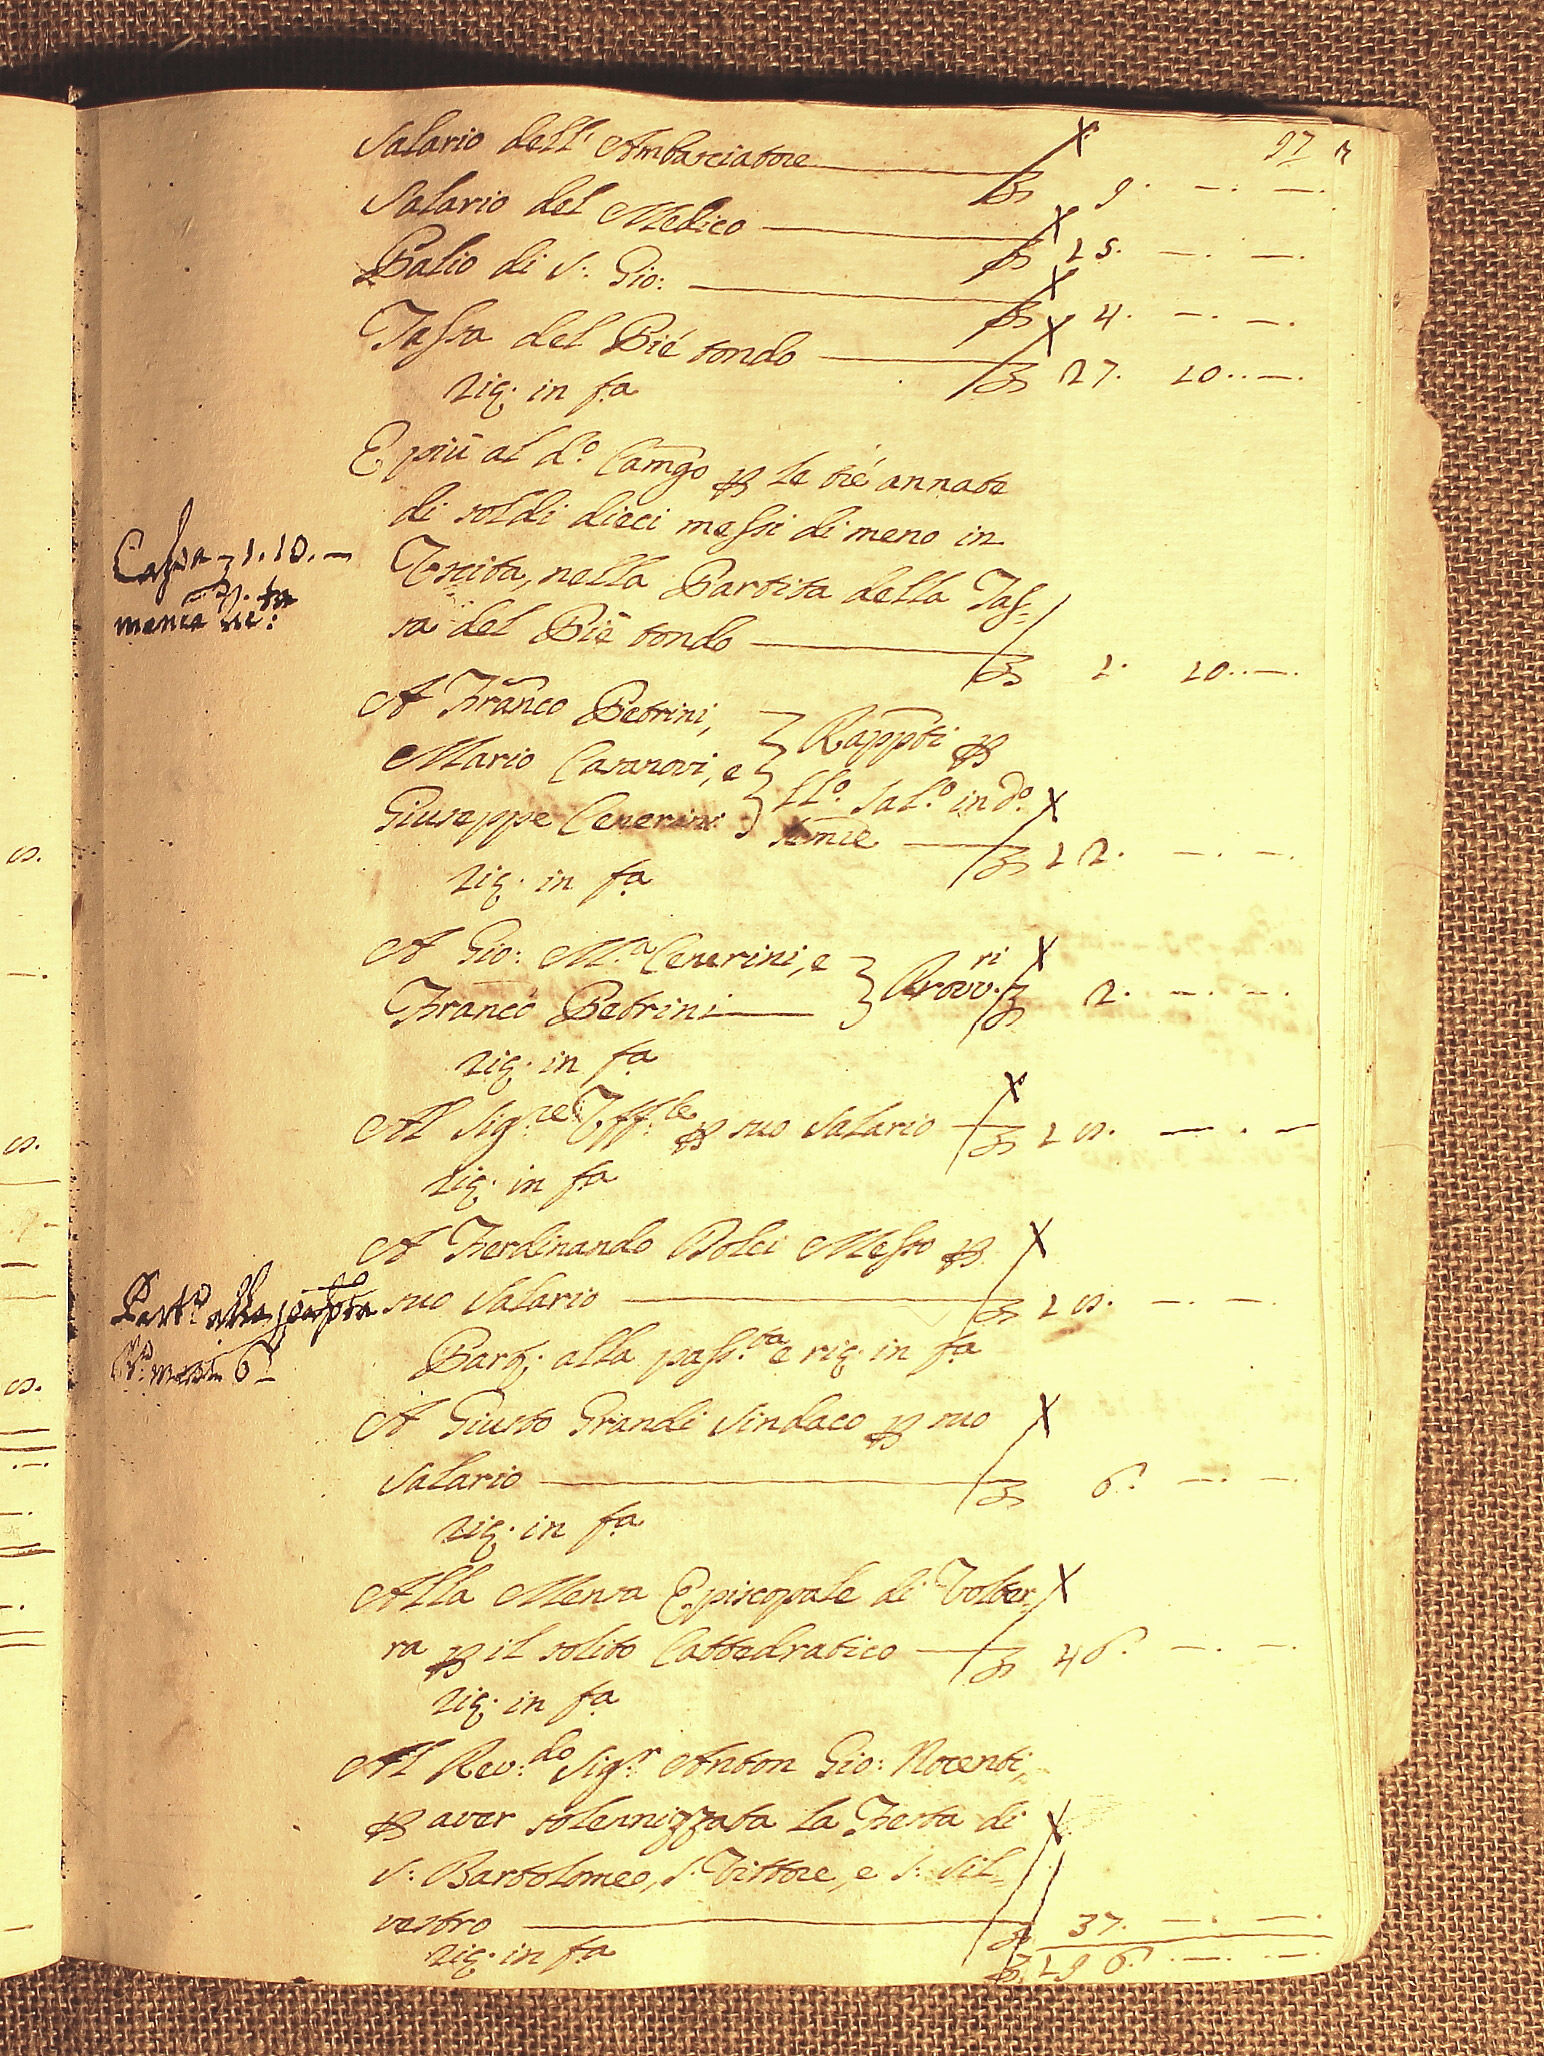 97
Salario dell' Ambasciatore — 9. —. —.
Salario del Medico — 15. —. —.
Palio di S: Gio: — 4. —. —.
Tassa del Pié tondo — 27. 10. —.
riq. in fa
E più al do. Camgo p le tré annate
di soldi dieci messi di meno in
Uscita, nella Partita della Tas-
sa del Piè tondo — 1. 10. —.
Cassa 1. 10. —
A Franco Petrini,
Mario Casanovi, e } Rappti p
Giuseppe Cenerini } llo. Salo. in do.
semie — 12. —. —.
riq. in fa
A Gio: Ma. Cenerini, e
Franco Petrini — } Provv.ri 2. —. —.
riq. in fa
Al Sig.re Uff.le p suo Salario — 10. —. —
riq. in fa
A Ferdinando Dolci Messo p
suo Salario — 10. —. —.
Parti. alla
Part. alla pass.ta e riq. in fa
A Giusto Grandi Sindaco p suo
Salario — 6. —. —.
riq. in fa
Alla Mensa Episcopale di Volter-
ra p il solito Cattedratico — 46. —. —.
riq. in fa
Al Rev.do Sig.r Anton Gio: Nocenti,
p aver solennizzata la Festa di
S: Bartolomeo, S. Vittore, e S: Sil-
vestro — 37. —. —.
riq. in fa 196. —. —.